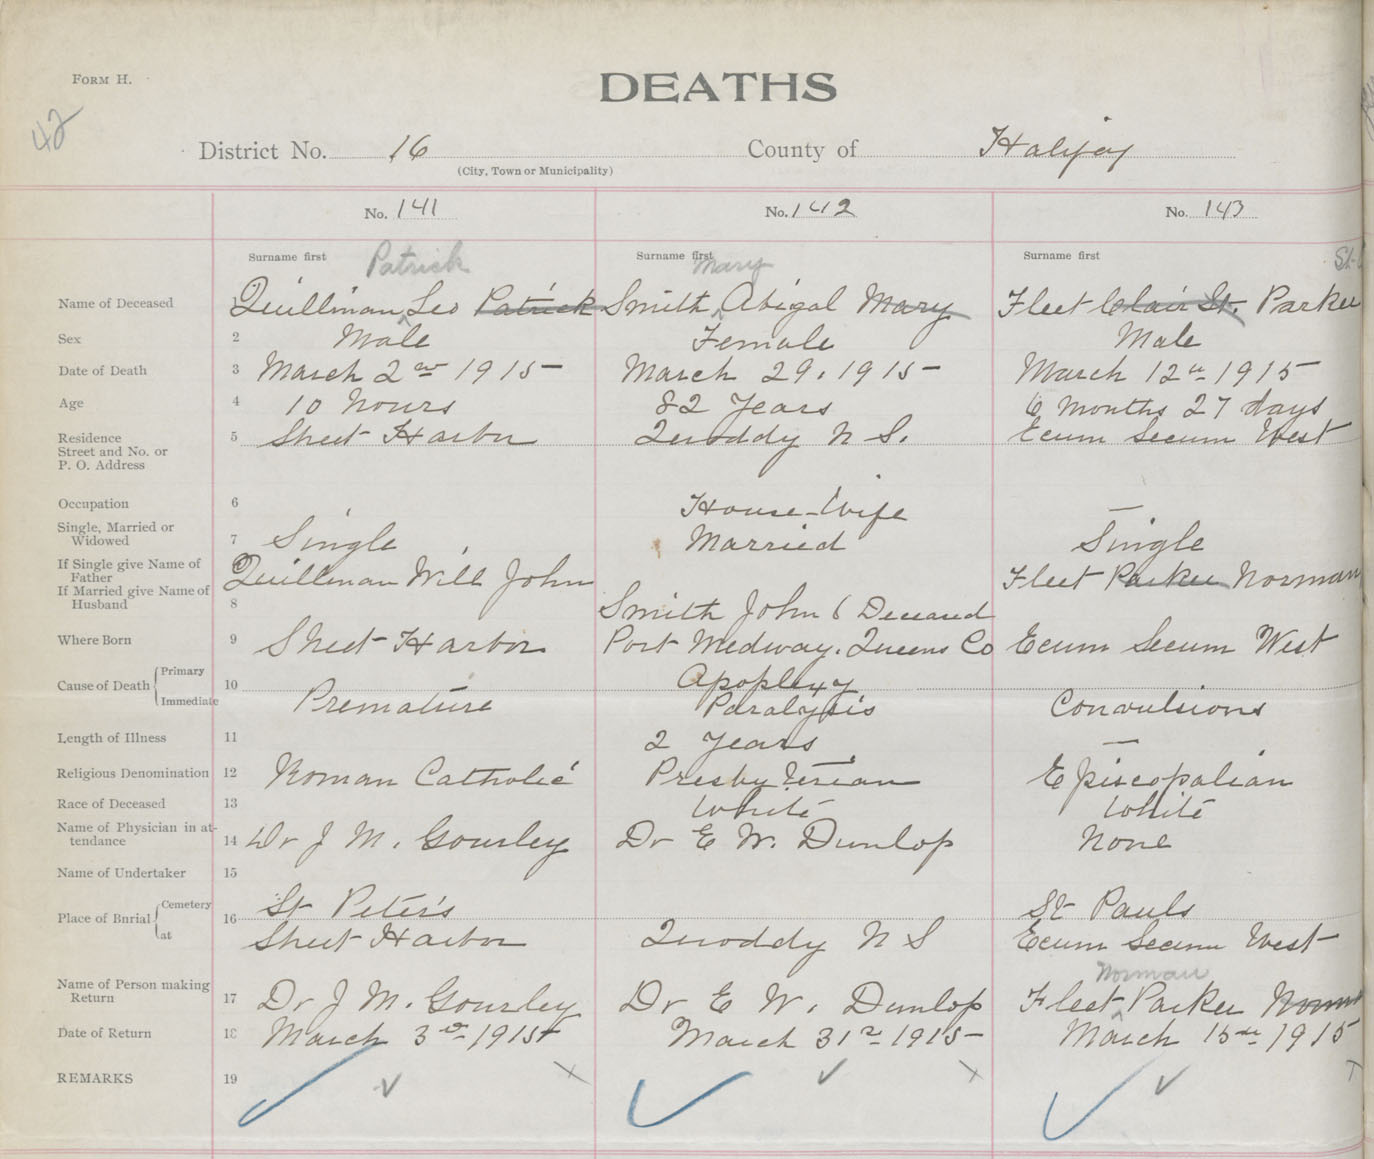 FORM H.
DEATHS
42
District No. 16 County of Halifax
(City, Town or Municipality)
No. 141 No. 142 No. 143
Surname first Patrick Surname first Mary Surname first St.
Name of Deceased 1 Quillinan Leo Patrick Smith Abigal Mary Fleet Clair St. Parker
Sex 2 Male Female Male
Date of Death 3 March 2nd 1915 March 29, 1915 March 12th 1915
Age 4 10 hours 82 years 6 months 27 days
Residence Street and No. or P. O. Address 5 Sheet Harbor Quoddy N S. Ecum Secum West
Occupation 6 House-Wife —
Single, Married or Widowed 7 Single Married Single
If Single give Name of Father Quillinan Will John Fleet Parker Norman
If Married give Name of Husband 8 Smith John Deceased
Where Born 9 Sheet Harbor Port Medway, Queens Co Ecum Secum West
Cause of Death Primary 10 Apoplexy
Immediate Premature Paralysis Convulsions
Length of Illness 11 2 years —
Religious Denomination 12 Roman Catholic Presbyterian Episcopalian
Race of Deceased 13 White White
Name of Physician in attendance 14 Dr J M. Gourley Dr E W. Dunlop None
Name of Undertaker 15
Place of Burial Cemetery 16 St Peter's St Pauls
at Sheet Harbor Quoddy N S Ecum Secum West
Norman
Name of Person making Return 17 Dr J M. Gourley Dr E W. Dunlop Fleet Parker Norman
Date of Return 18 March 3rd 1915 March 31st 1915 March 15th 1915
REMARKS 19